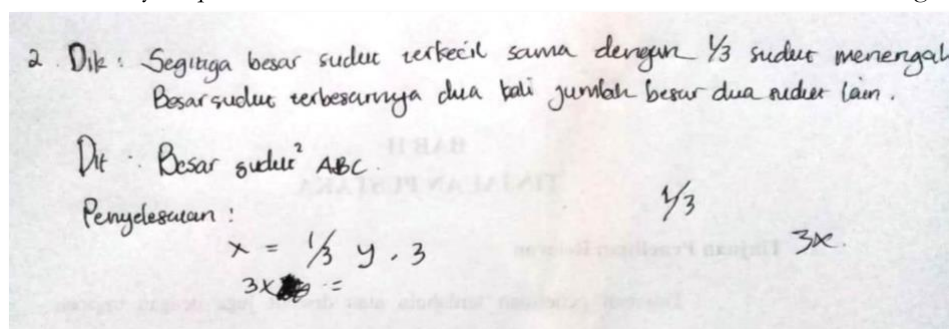 2. Dik : Segitiga besar sudut terkecil sama dengan 1/3 sudut menengah
Besar sudut terbesarnya dua kali jumlah besar dua sudut lain.
Dit : Besar sudut² ABC.
Penyelesaian :
1/3
x = 1/3 y . 3
3x.
3x =
BAB II
TINJAUAN PUSTAKA